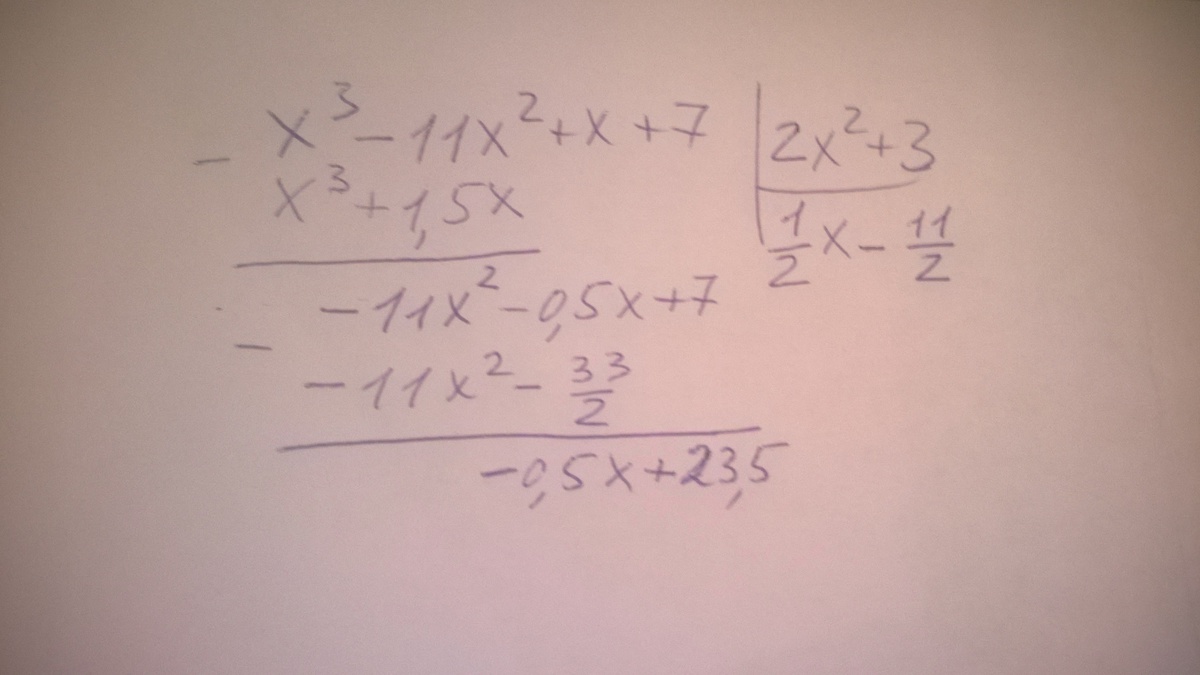 x³ - 11x² + x + 7 | 2x² + 3
-
x³ + 1,5x
1/2 x - 11/2
-11x² - 0,5x + 7
-
-11x² - 33/2
-0,5x + 23,5